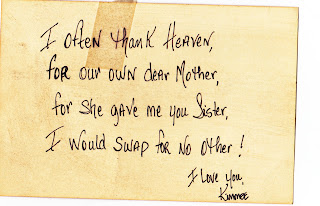 I often thank Heaven,
for our own dear Mother,
for She gave me you Sister,
I would swap for no other!
I love you.
Kimmee